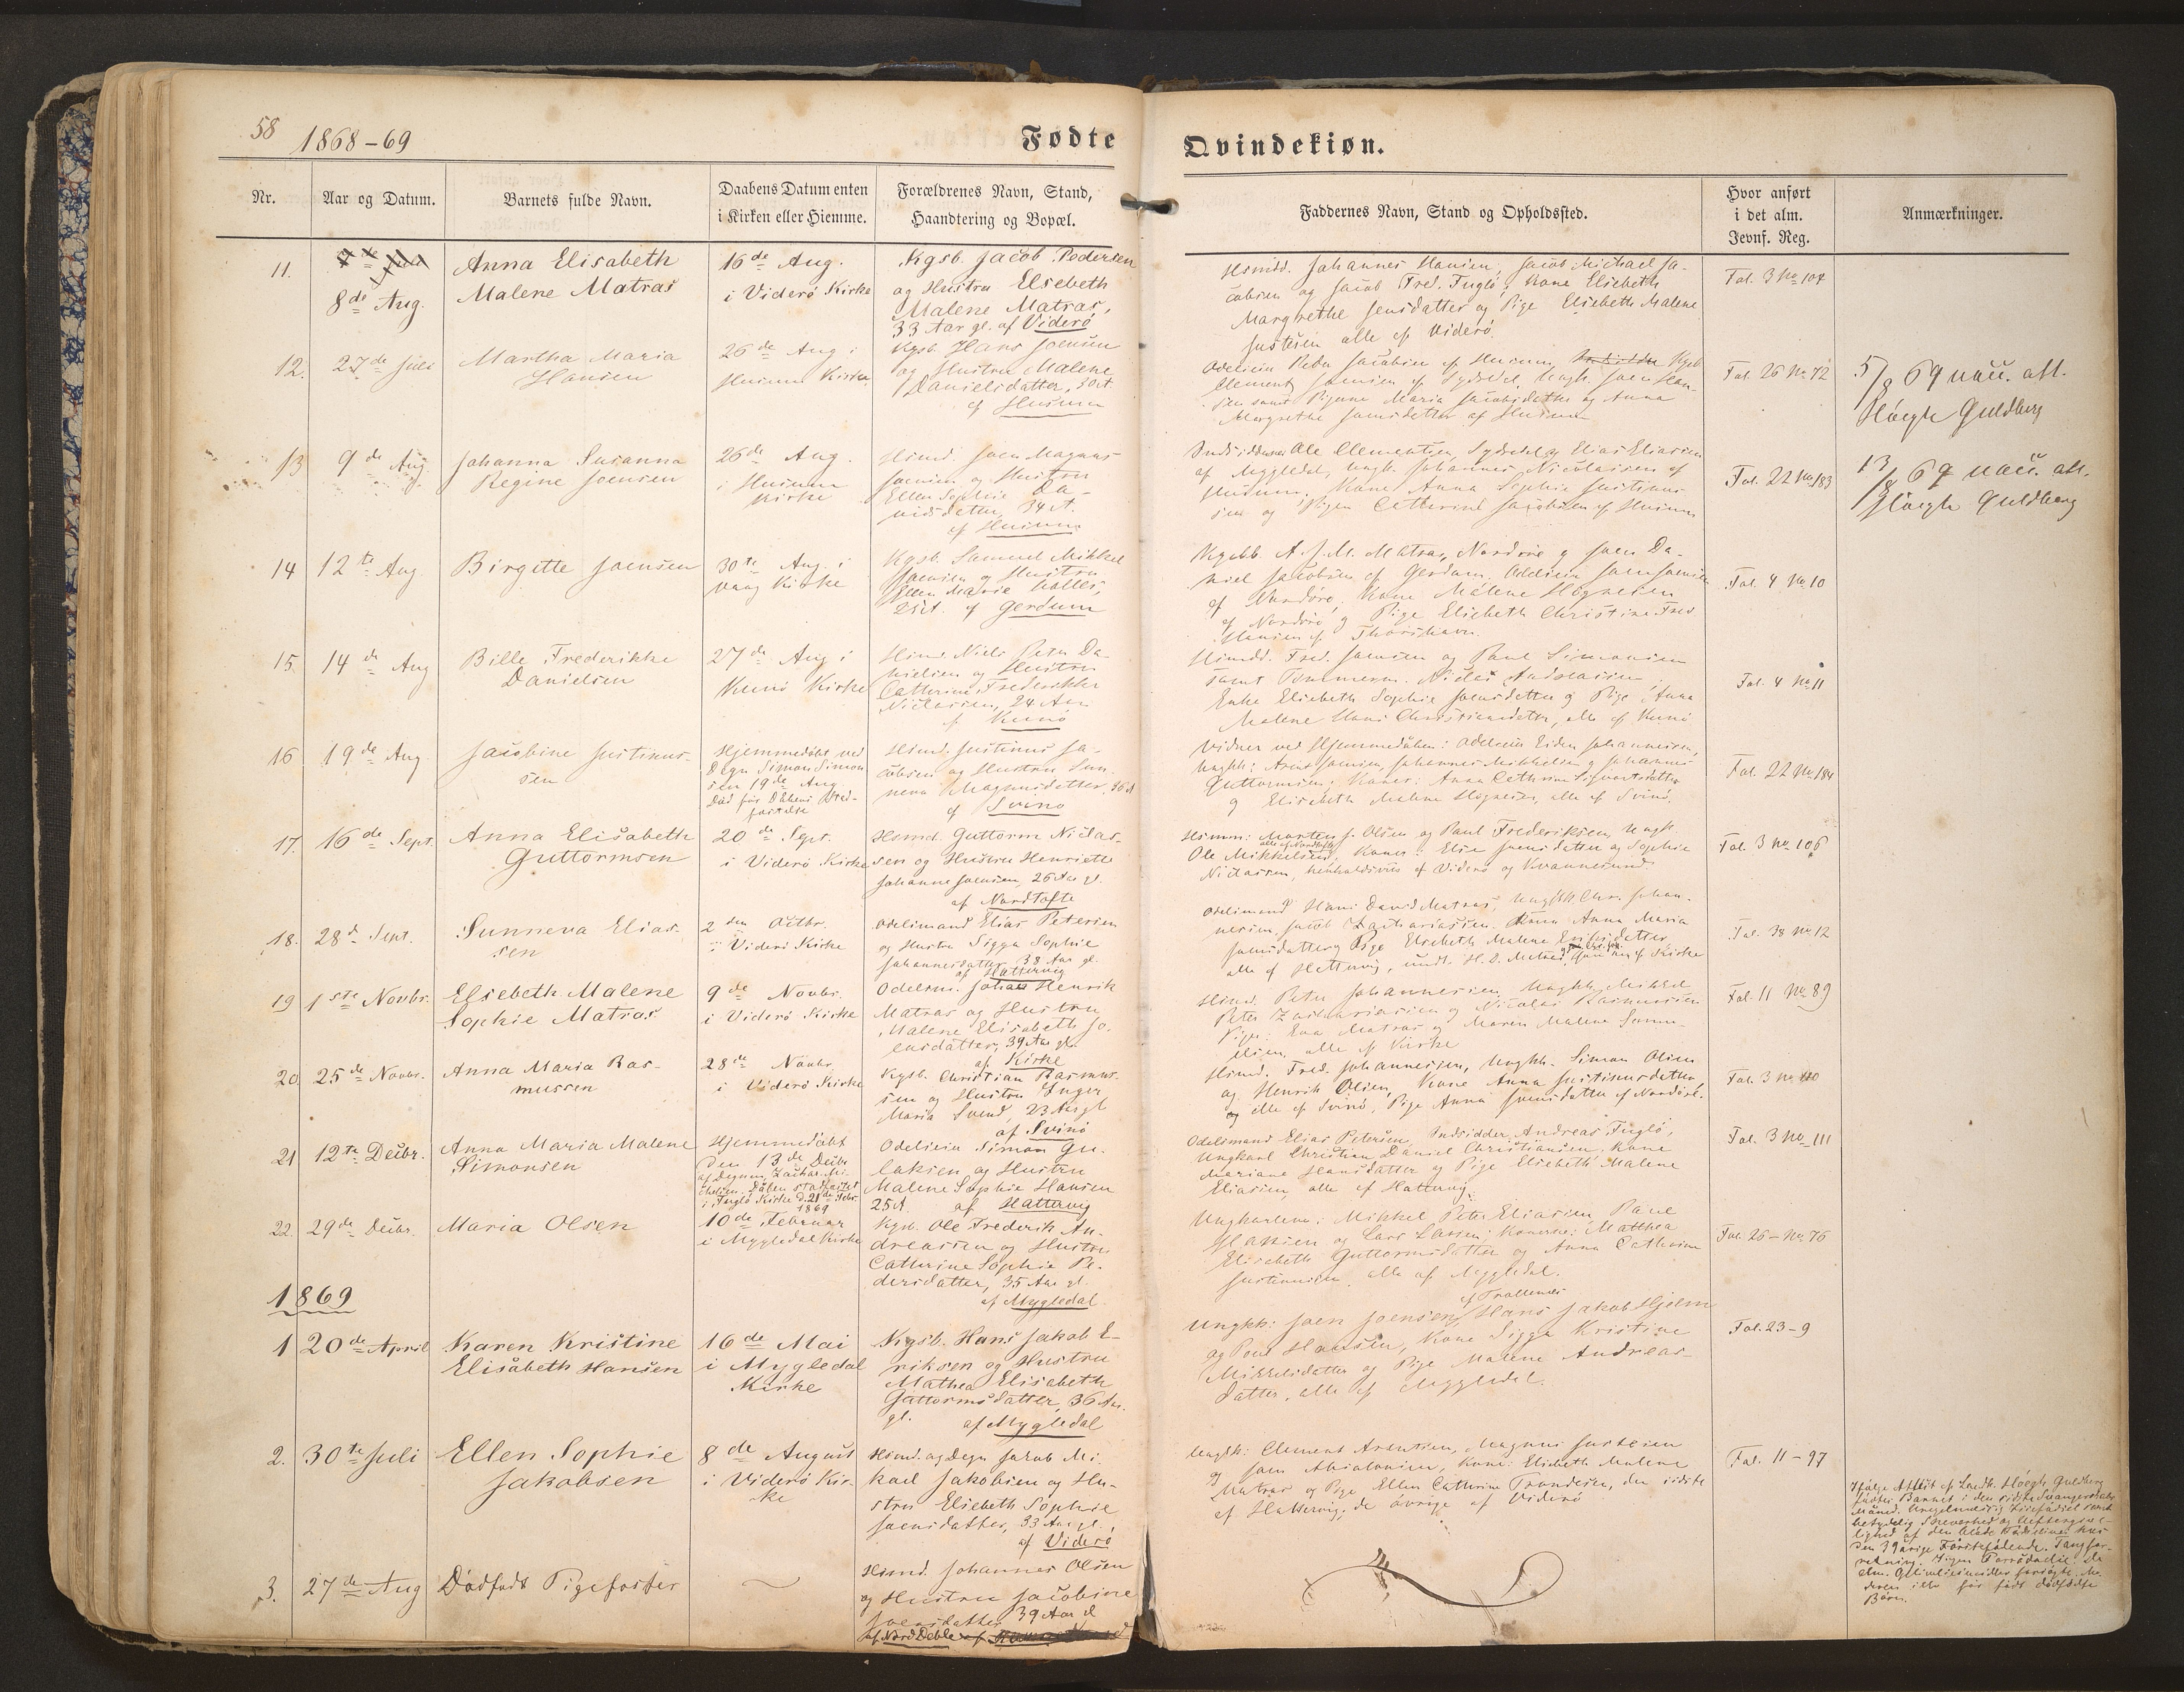 58 1868-69 Fødte Qvindekiøn.
Nr. Aar og Datum. Barnets fulde Navn. Daabens Datum enten i Kirken eller Hiemme. Forældrenes Navn, Stand, Haandtering og Bopæl. Faddernes Navn, Stand og Opholdssted. Hvor anført i det alm. Jevnf. Reg. Anmærkninger.
11.
8de Aug.
Anna Elisabeth
Malene Matras
16de Aug.
i Viderö Kirke
Kgsb. Jacob Pedersen
og Hustru Elsebeth
Malene Matras,
33 Aar gl. af Viderö
Hsmdd. Johannes Hansen, Jacob Michael Ja-
cobsen og Jacob Fred. Fuglö, Kone Elisebeth
Margrethe Jensdatter og Pige Elsebeth Malene
Justesen alle af Viderö.
Fol. 3 No 104
12.
27de Juli
Martha Maria
Hansen
26de Aug i
Husum Kirke
Kgsb. Hans Joensen
og Hustru Malene
Danielsdatter, 30 A.
af Husum
Odelsm Peder Jacobsen af Husum, Kgsb.
Clement Joensen af Sydedel, Ungk. Joen Han-
sen samt Pigerne Maria Jacobsdatter og Anna
Margrethe Joensdatter af Husum
Fol. 26 No 72
5/8 69 vacc. att.
Høegh Guldberg
13
9de Aug.
Johanna Susanna
Regine Joensen
26de Aug.
i Husum
Kirke
Hsmd. Joen Magnus
Joensen og Hustru
Ellen Sophie Da-
vidsdatter, 34 A.
af Husum
Indsidderne Ole Clementsen, Sydedel og Elias Eliasen
af Mygledal, Ungk. Johannes Nicolaisen af
Husum, Kone Anna Sophie Justinus-
sen og Pigen Cathrine Jacobsen af Husum
Fol. 22 No 183
13/8 69 vacc. att.
Høegh Guldberg
14
12te Aug.
Birgitte Joensen
30te Aug. i
Vaag Kirke
Kgsb. Samuel Mikkel
Joensen og Hustru
Ellen Marie
af Gerdum
Kgsbb. A. J. M. Matras, Nordöre og Joen Da-
niel Jacobsen af Gerdum. Odelsm Joen Joensen
af Nordöre, Kone Malene Högnesen
af Nordöre og Pige Elsebeth Christine Fred.
Hansen af Thorshavn.
Fol. 4 No 10
15.
14de Aug
Bille Frederikke
Danielsen
27de Aug i
Kunö Kirke
Hsmd. Niels Peter Da-
nielsen og Hustru
Cathrine Frederikke
Niclasen, 24 Aar
af Kunö
Hsmdd. Fred. Joensen og Paul Simonsen
samt Niclas Andreasen
Enke Elsebeth Sophie Joensdatter og Pige Anna
Malene Hans Christiansdatter, alle af Kunö
Fol. 4 No 11
16
19de Aug
Jacobine Justinus-
sen
Hjemmedöbt ved
Degn Simon Simon
sen 19de Aug
Död för Daabens Stad-
fæstelse
Hsmd. Justinus Ja-
cobsen og Hustru Sun-
neva Magnusdatter, 36 A
af Svinö
Vidner ved Hjemmedaaben: Odelsm Eiden Johannesen,
Ungkk: Arent Joensen, Johannes Mikkelsen og Johannes
Guttormsen; Koner: Anna Cathrine Sigvartsdatter
og Elisabeth Malene Högnesen, alle af Svinö.
Fol. 22 No 184
17.
16de Sept.
Anna Elisabeth
Guttormsen
20de Sept.
i Viderö Kirke
Hsmd. Guttorm Niclas-
sen og Hustru Henriette
Johanne Joensen, 26 Aar gl.
af Nordtofte
Hsmm: Morten J. Olsen og Paul Frederiksen, Ungk.
Ole Mikkelsen, alle af Nordtofte Koner: Else Joensdatter og Sophie
Niclassen, henholdsvis af Viderö og Kvannesund
Fol. 3 No 106
18.
28d Sept.
Sunneva Elias-
sen
2den Octbr.
i Viderö Kirke
Odelsmand Elias Petersen
og Hustru Sigga Sophie
Johannesdatter, 38 Aar gl.
af Hattervig
Odelsmand Hans David Matras, Ungkk Chr. Johan-
nesen, Jacob Zachariassen. Kone Anna Maria
Joensdatter og Pige Elsebeth Malene
alle af Hattervig, undt. H. D. Matras, af Kirke
Fol. 38 No 12
19
1ste Novbr.
Elsebeth Malene
Sophie Matras
9de Novbr.
i Viderö Kirke
Odelsm. Johan Henrik
Matras og Hustru
Malene Elisabeth Jo-
ensdatter, 39 Aar gl.
af Kirke
Hsmd. Peter Johannesen, Ungkk Mikkel
Peter Zachariasen og Nicolai Rasmussen
Piger Eva Matras og Maren Malene
alle af Kirke
Fol. 11 No 89
20.
25de Novbr.
Anna Maria Ras-
mussen
28de Novbr.
i Viderö Kirke
Kgsb. Christian Rasmus-
sen og Hustru Inger
Maria Svend, 23 Aar gl
af Svinö
Hsmd. Fred. Johannesen, Ungkk. Simon Olsen
og Henrik Olsen, Kone Anna Justinusdatter
og alle af Svinö, Pige Anna Joensdatter af Nordöre.
Fol. 3 No 110
21
12te Decbr.
Anna Maria Malene
Simonsen
Hjemmedöbt
den 13de Decbr.
af Degnen
Daaben stadfæstet
i Fuglö Kirke d. 21de Febr.
1869
Odelsm Simon Gu-
laksen og Hustru
Malene Sophie Hansen
25 A. af Hattervig
Odelsmand Elias Petersen, Indsidder Andreas Fuglö,
Ungkarl Christian Daniel Christiansen, Kone
Mariane Hansdatter og Pige Elsebeth Malene
Eliasen, alle af Hattervig.
Fol. 3 No 111
22.
29de Decbr.
Maria Olsen
10de Februar
i Mygledal Kirke
Kgsb. Ole Frederik An-
dreasen og Hustru
Cathrine Sophie Pe-
dersdatter, 35 Aar gl.
af Mygledal
Ungkarlene: Mikkel Peter Eliasen, Paul
og Lars Larsen; Konerne: Matthea
Elisebeth Guttormsdatter og Anna Cathrine
Justinusen, alle af Mygledal.
Fol. 26 - No 76
1869
1
20de April
Karen Kristine
Elisabeth Hansen
16de Mai
i Mygledal
Kirke
Kgsb. Hans Jakob E-
riksen og Hustru
Mathea Elisabeth
Guttormsdatter, 36 Aar
gl. af Mygledal
af Trollenes
Ungkk: Joen Joensen, Hans Jakob Hjelm
og Poul Hansen, Kone Sigga Kristine
Mikkelsdatter og Pige Malene Andreas-
datter, alle af Mygledal.
Fol. 23-9
2.
30te Juli
Ellen Sophie
Jakobsen
8de August
i Viderö Kir-
ke
Hsmd. og Degn Jakob Mi-
kael Jakobsen og Hu-
stru Elsebeth Sophie
Joensdatter, 33 Aar gl.,
af Viderö
Ungkk: Clement Arentsen, Magnus Justesen
og Joen Absalonsen, Kone: Elsebeth Malene
Matras og Pige Ellen Cathrine Trondesen, den sidste
af Hattervig, de övrige af Viderö
Fol. 11-97
3.
27de Aug
Dödfödt Pigefoster
Hsmd. Johannes Olsen
og Hustru Jacobine
Joensdatter 39 Aar gl
af Nord Deble
Ifölge Attest af Landk. Höegh Guldberg
födtes Barnet i den sidste Svangerskabs
Maaned.